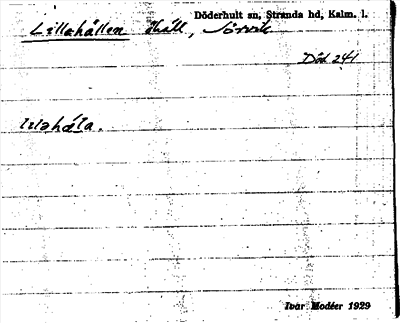 Döderhult sn, Stranda hd, Kalm. l.
Lillahällen skäll, Sörvik
Död 241
lilahäla.
Ivar Modéer 1929